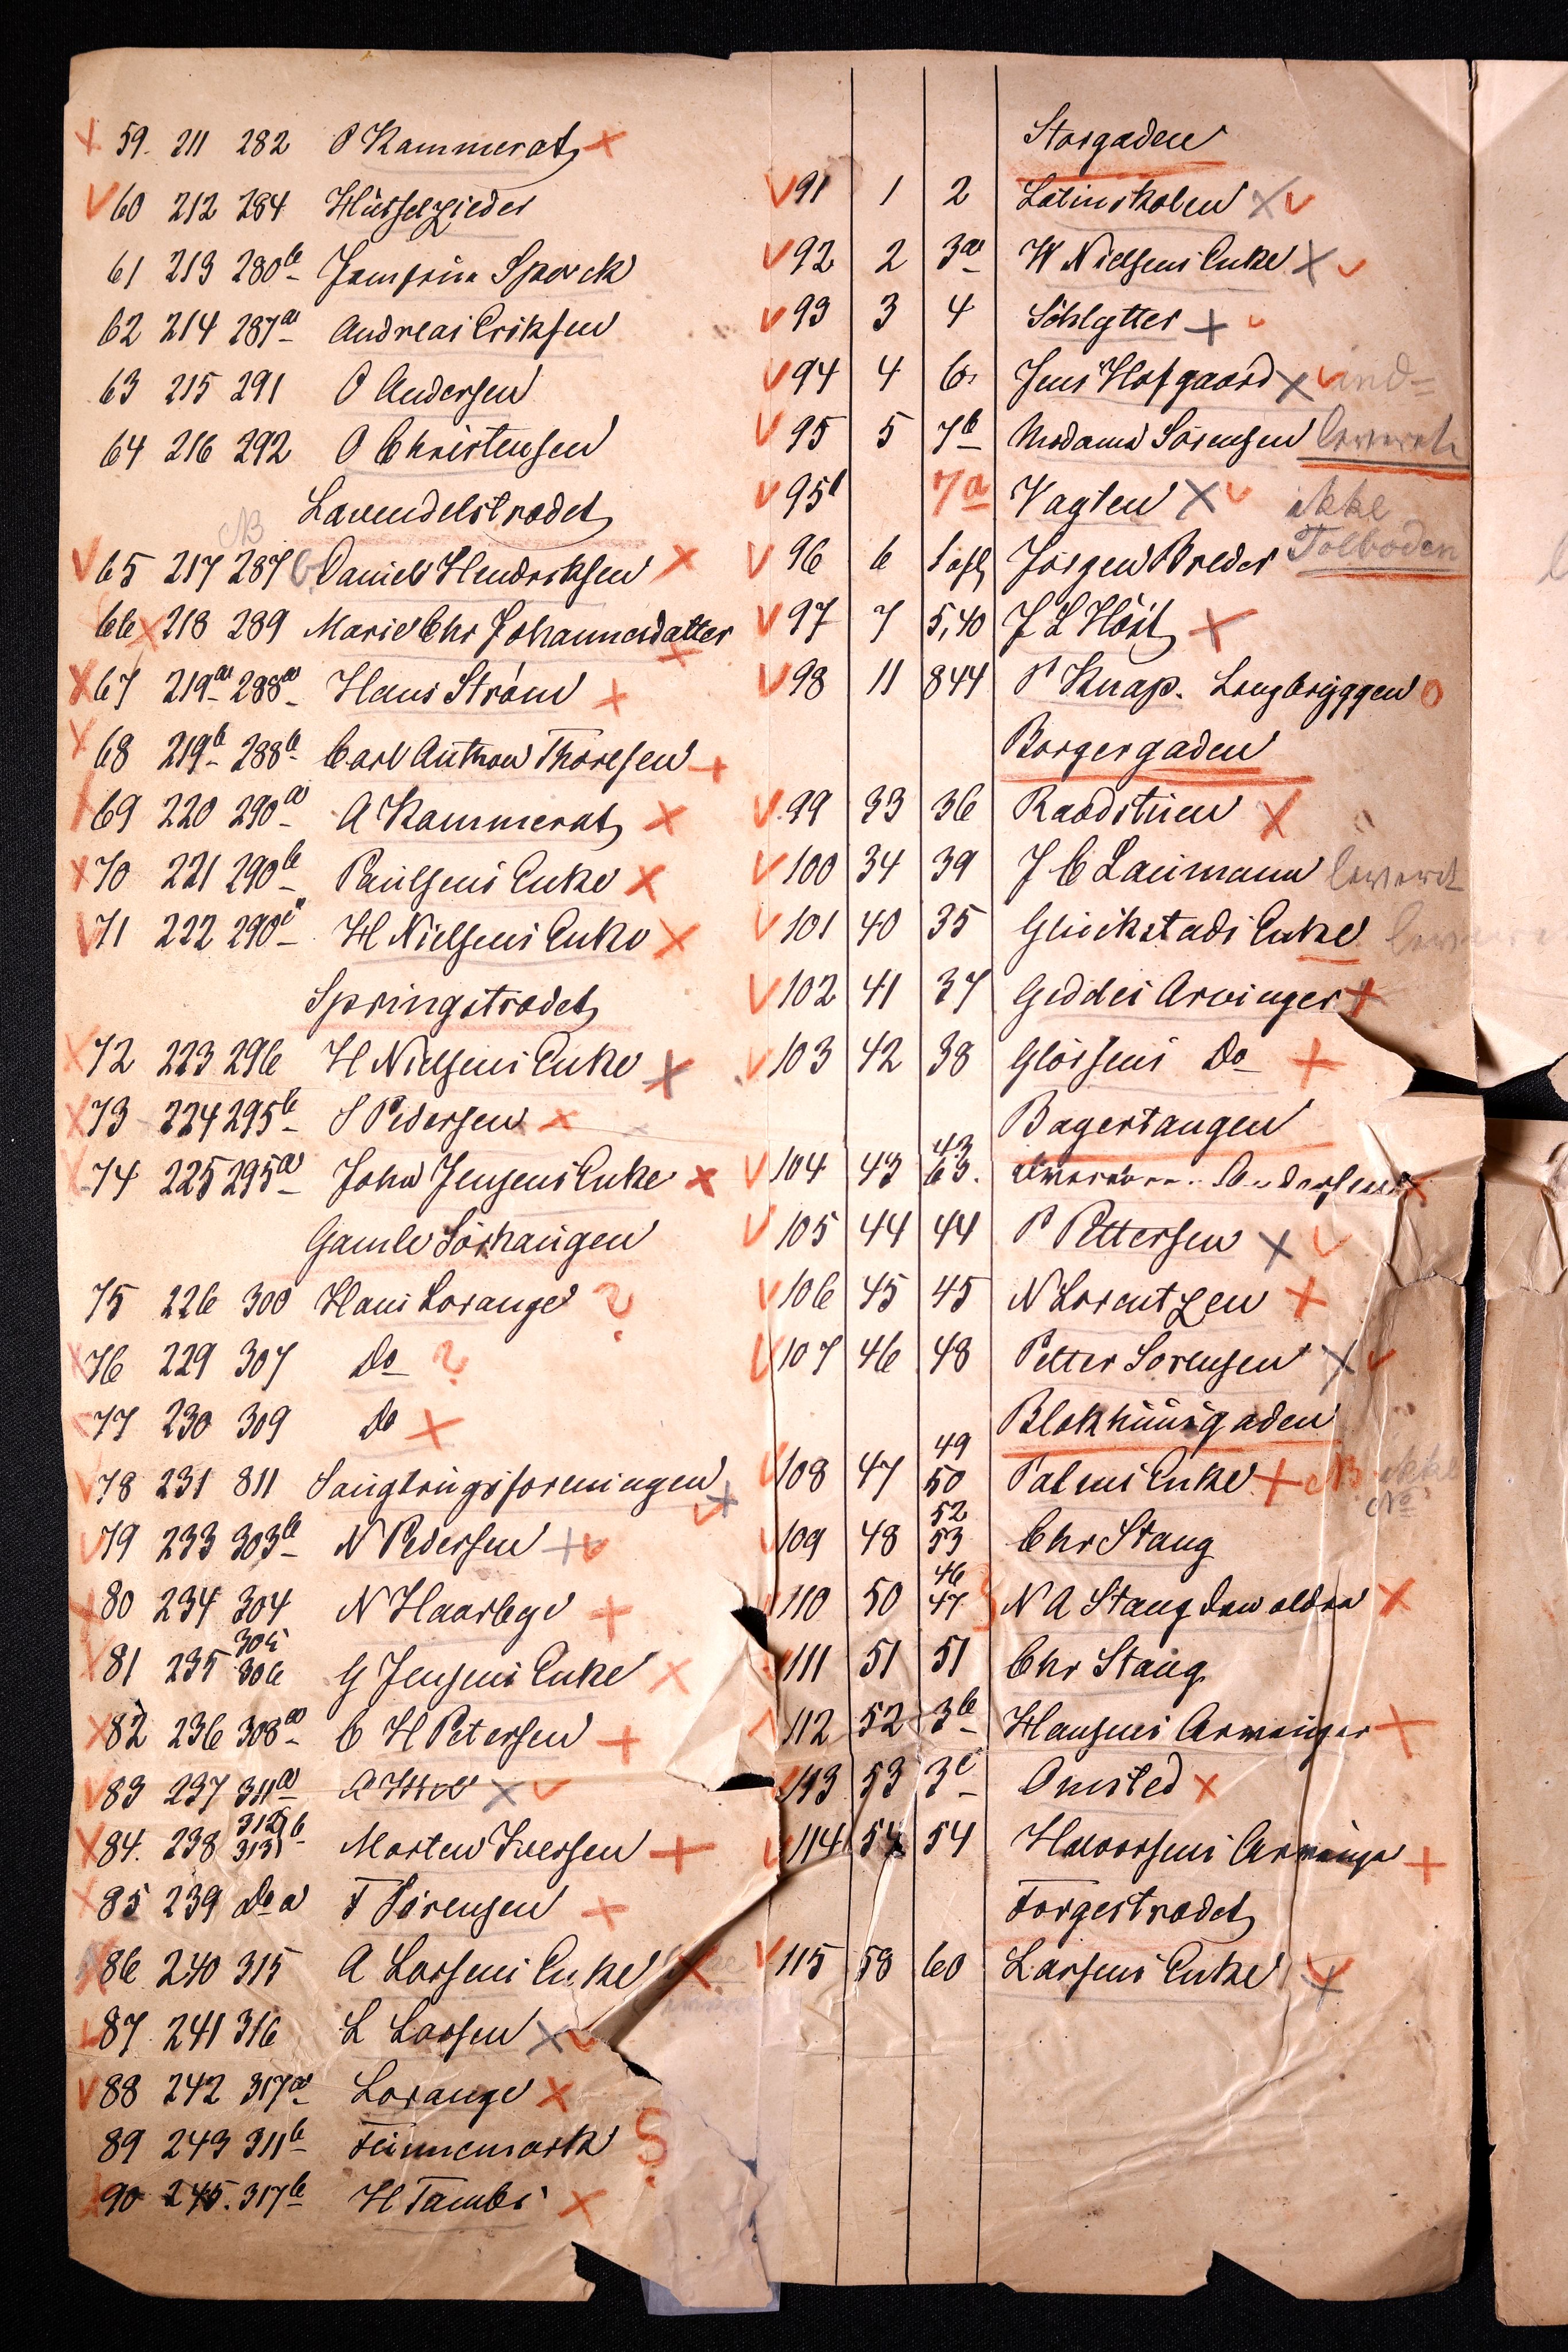 59. 211 282 P Kammerat
60 212 284
61 213 280b Jomfrüe Sparck
62 214 287a Andreas Eriksen
63 215 291 O Andersen
64 216 292 O Christensen
Lavendelstrædet
NB
65 217 287b Daniel Hendriksen
66 218 289 Marie Chr Johannesdatter
67 219a 288a Hans Strøm
68 219b 288b Carl Anthon Thoresen
69 220 290a A Kammerat
70 221 290b Paulsens Enke
71 222 290c H Nielsens Enke
Springstrædet
72 223 296 H Nielsens Enke
73 224 295b S Pedersen
74 225 295a John Jensens Enke
Gamle Sørhaugen
75 226 300 Hans Lorange ?
76 229 307 Do ?
77 230 309 Do
78 231 811
79 233 303b N Pedersen
80 234 304 N Haarbye
81 235 305 306 G Jensens Enke
82 236 308a C H Petersen
83 237 311a A
84. 238 312 313 b Morten Iversen
85 239 Do a T Sørensen
86 240 315 A Larsens Enke
87. 241 316 L Larsen
88 242 317a Lorange
89 243 311b Finnemark ?
90 245. 317b H Tambs
Storgaden
91 1 2 Latinskolen
92 2 3a W Nielsens Enke
93 3 4 Schlytter
94 4 6. Jens Hofgaard ind=
95 5 7b Madame Sørensen leveret
95 1/2 7a Vagten ikke
96 6 Jørgen Breder Tolboden
97 7 5,40 J L Høst
98 11 844 P Knap. Langbryggen
Borgergaden
99 33 36 Raadstuen
100 34 39 J C Laumann leveret
101 40 35 Glückstads Enke
102 41 37 Geddes Arvinger
103 42 38 Glørsens Do
Bagertangen
104 43 43 63. Andersen
105 44 44 P Pettersen
106 45 45 N Lorentzen
107 46 48 Petter Sørensen
Blokhuusgaden
108 47 49 50 Palms Enke NB ikke
No
109 48 52 53 Chr Stang
110 50 46 47 N A Stang den ældre
111 51 51 Chr Stang
112 52 3b Hansens Arvinger
113 53 3c Omsted
114 54 54 Halvorsens Arvinge
Torgestrædet
115 58 60 Larsens Enke